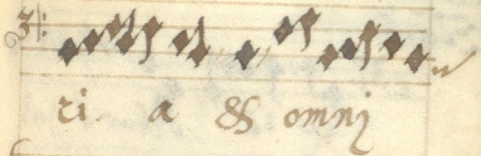 ri a & omnj